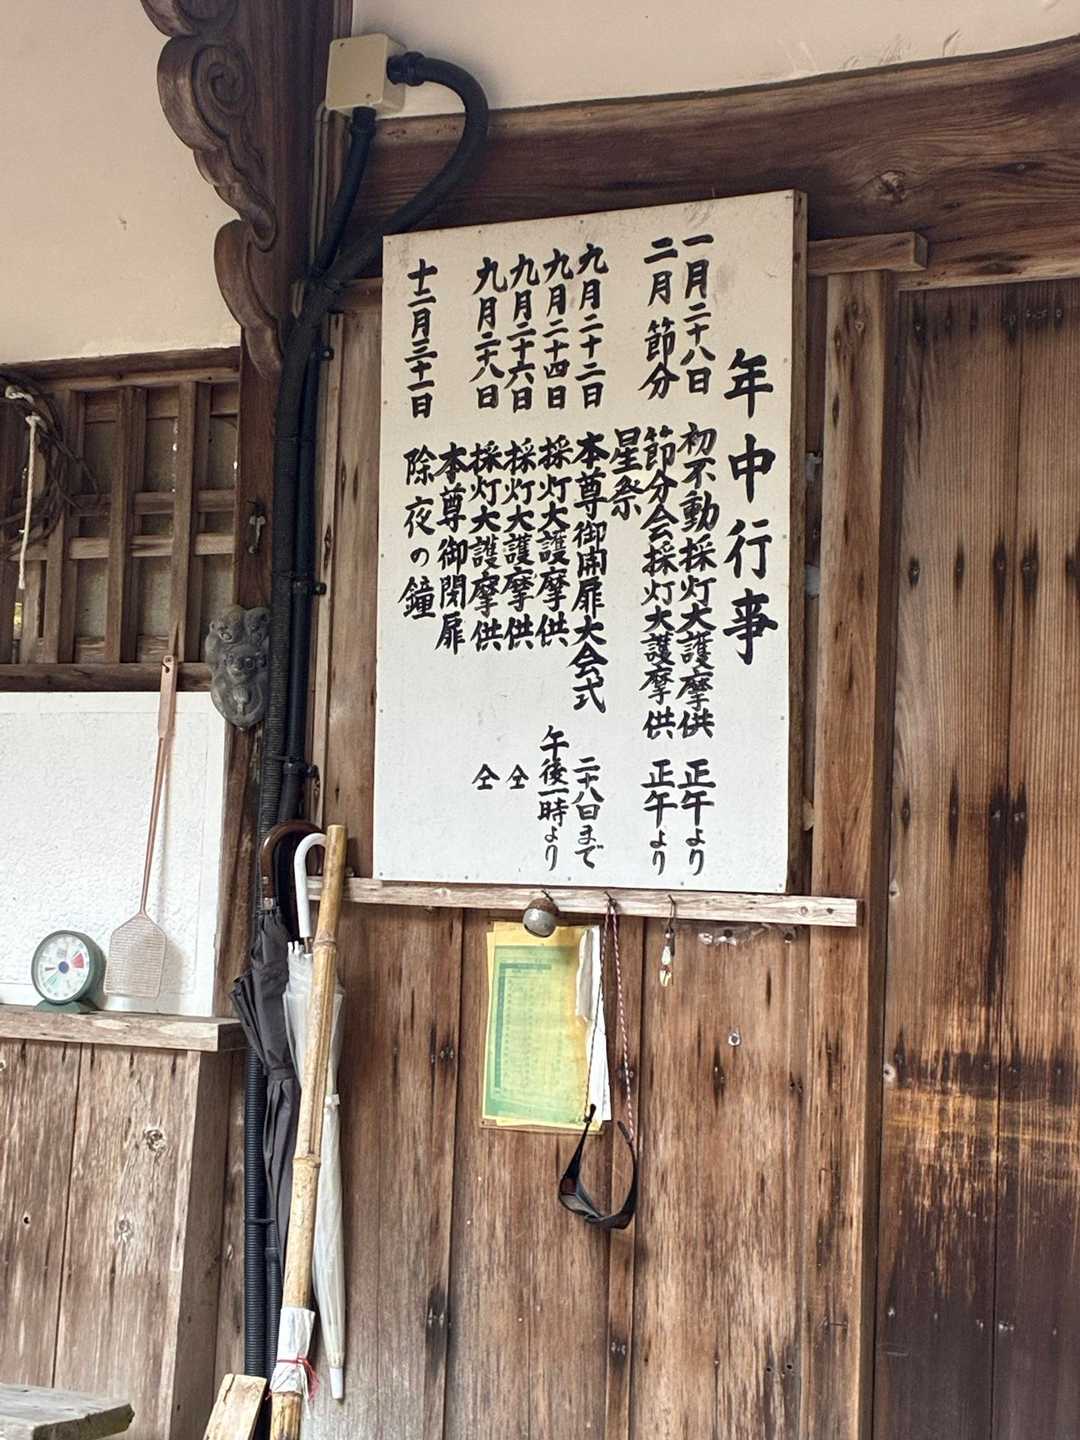 年中行事
一月二十八日 初不動採灯大護摩供 正午より
二月節分 節分会採灯大護摩供 正午より
星祭
九月二十二日 本尊御開扉大会式 二十八日まで
九月二十四日 採灯大護摩供 午後一時より
九月二十六日 採灯大護摩供 仝
九月二十八日 採灯大護摩供 仝
本尊御閉扉
十二月三十一日 除夜の鐘